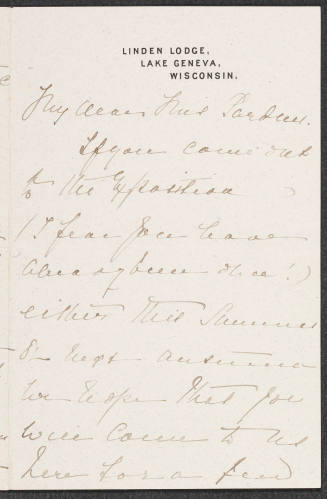 LINDEN LODGE,
LAKE GENEVA,
WISCONSIN.
My dear Miss
If you come out
to the Exposition
(I fear you have
already been once!)
either this Summer
or next autumn
we hope that you
will come to us
here for a few